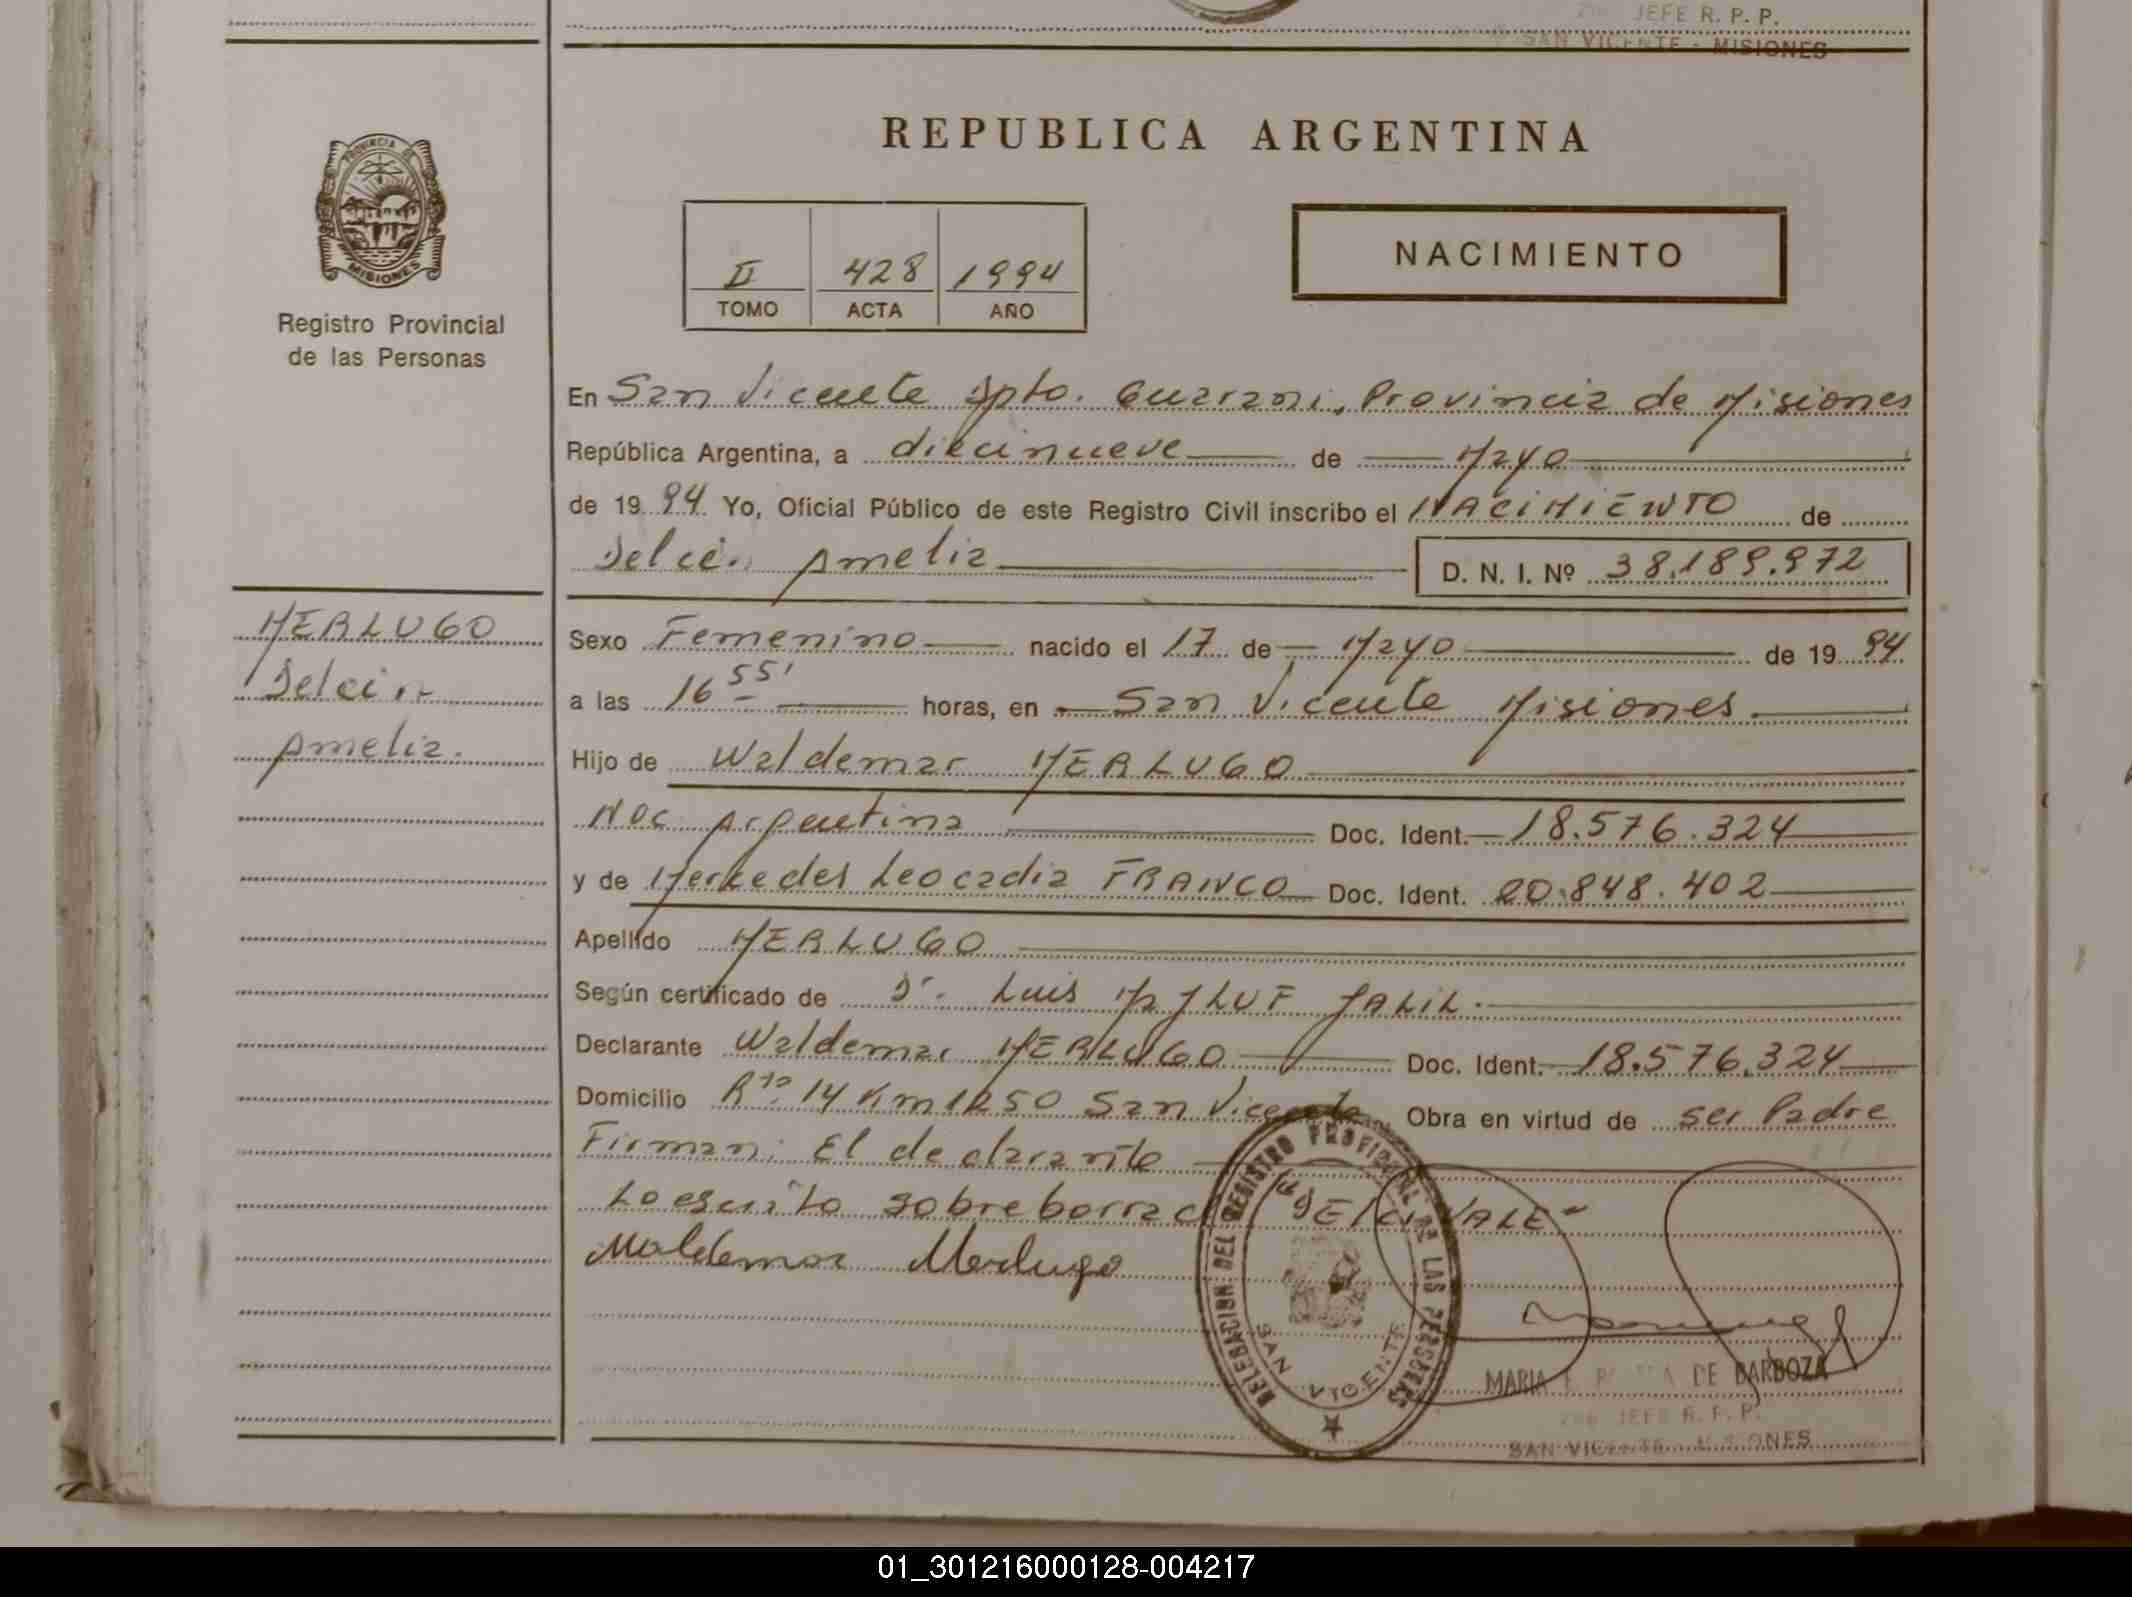 JEFE R. P. P.
SAN VICENTE - MISIONES
PROVINCIA DE
MISIONES
Registro Provincial
de las Personas
REPUBLICA ARGENTINA
II 428 1994
TOMO ACTA AÑO
NACIMIENTO
En San Vicente Dpto. Guarani, Provincia de Misiones
República Argentina, a diecinueve de Mayo
de 19 94 Yo, Oficial Público de este Registro Civil inscribo el NACIMIENTO de
Delci Amelia D. N. I. Nº 38.189.972
MERLUGO
Delci
Amelia.
Sexo Femenino nacido el 17 de Mayo de 19 94
a las 16 55' horas, en San Vicente Misiones
Hijo de Waldemar MERLUGO
Nac Argentina Doc. Ident. 18.576.324
y de Mercedes Leocadia FRANCO Doc. Ident. 20.848.402
Apellido MERLUGO
Según certificado de Dr. Luis MAJLUF JALIL.
Declarante Waldemar MERLUGO Doc. Ident. 18.576.324
Domicilio Rta. 14 Km 1250 San Vicente Obra en virtud de ser Padre
Firman: El declarante
Lo escrito sobre borrado "DELCI VALE"
Waldemar Merlugo
DELEGACION DEL REGISTRO PROVINCIAL DE LAS PERSONAS
SAN VICENTE
MARIA DE BARBOZA
JEFE R. P. P.
SAN VICENTE MISIONES
01_301216000128-004217